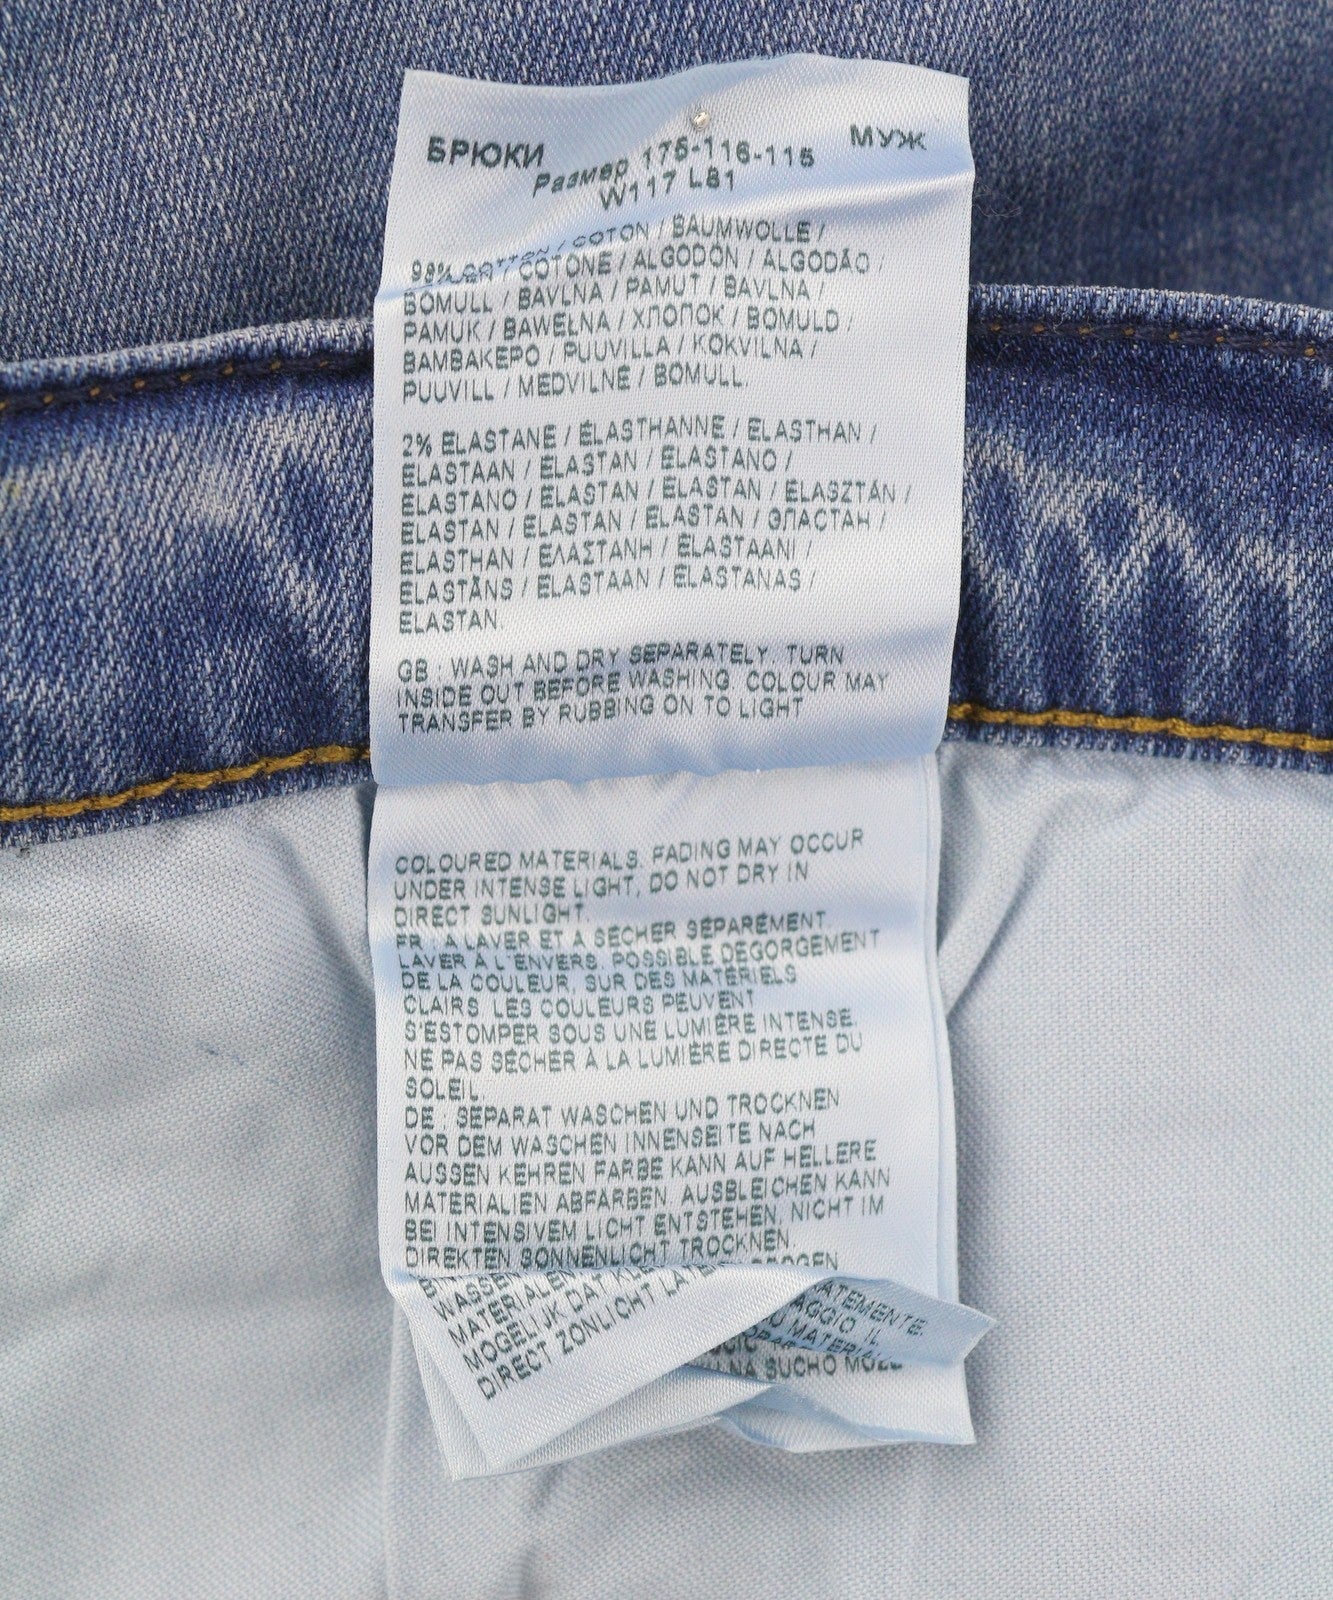 БРЮКИ МУЖ
Размер 175-116-115
W117 L81
98% COTTON / COTON / BAUMWOLLE /
COTONE / ALGODON / ALGODÃO /
BOMULL / BAVLNA / PAMUT / BAVLNA /
PAMUK / BAWEŁNA / ХЛОПОК / BOMULD /
BAMBAKEPO / PUUVILLA / KOKVILNA /
PUUVILL / MEDVILNĖ / BOMULL.
2% ELASTANE / ÉLASTHANNE / ELASTHAN /
ELASTAAN / ELASTAN / ELASTANO /
ELASTANO / ELASTAN / ELASTAN / ELASZTÁN /
ELASTAN / ELASTAN / ELASTAN / ЭЛАСТАН /
ELASTHAN / ΕΛΑΣΤΑΝΗ / ELASTAANI /
ELASTĀNS / ELASTAAN / ELASTANAS /
ELASTAN
GB : WASH AND DRY SEPARATELY. TURN
INSIDE OUT BEFORE WASHING. COLOUR MAY
TRANSFER BY RUBBING ON TO LIGHT
COLOURED MATERIALS. FADING MAY OCCUR
UNDER INTENSE LIGHT, DO NOT DRY IN
DIRECT SUNLIGHT.
FR : A LAVER ET A SÉCHER SÉPARÉMENT.
LAVER À L'ENVERS. POSSIBLE DÉGORGEMENT
DE LA COULEUR, SUR DES MATÉRIELS
CLAIRS. LES COULEURS PEUVENT
S'ESTOMPER SOUS UNE LUMIÈRE INTENSE.
NE PAS SÉCHER À LA LUMIÈRE DIRECTE DU
SOLEIL.
DE : SEPARAT WASCHEN UND TROCKNEN
VOR DEM WASCHEN INNENSEITE NACH
AUSSEN KEHREN FARBE KANN AUF HELLERE
MATERIALIEN ABFÄRBEN. AUSBLEICHEN KANN
BEI INTENSIVEM LICHT ENTSTEHEN, NICHT IM
DIREKTEN SONNENLICHT TROCKNEN.
WASSEN
MATERIALEN
MOGELIJK DAT
DIRECT ZONLICHT
SUCHO